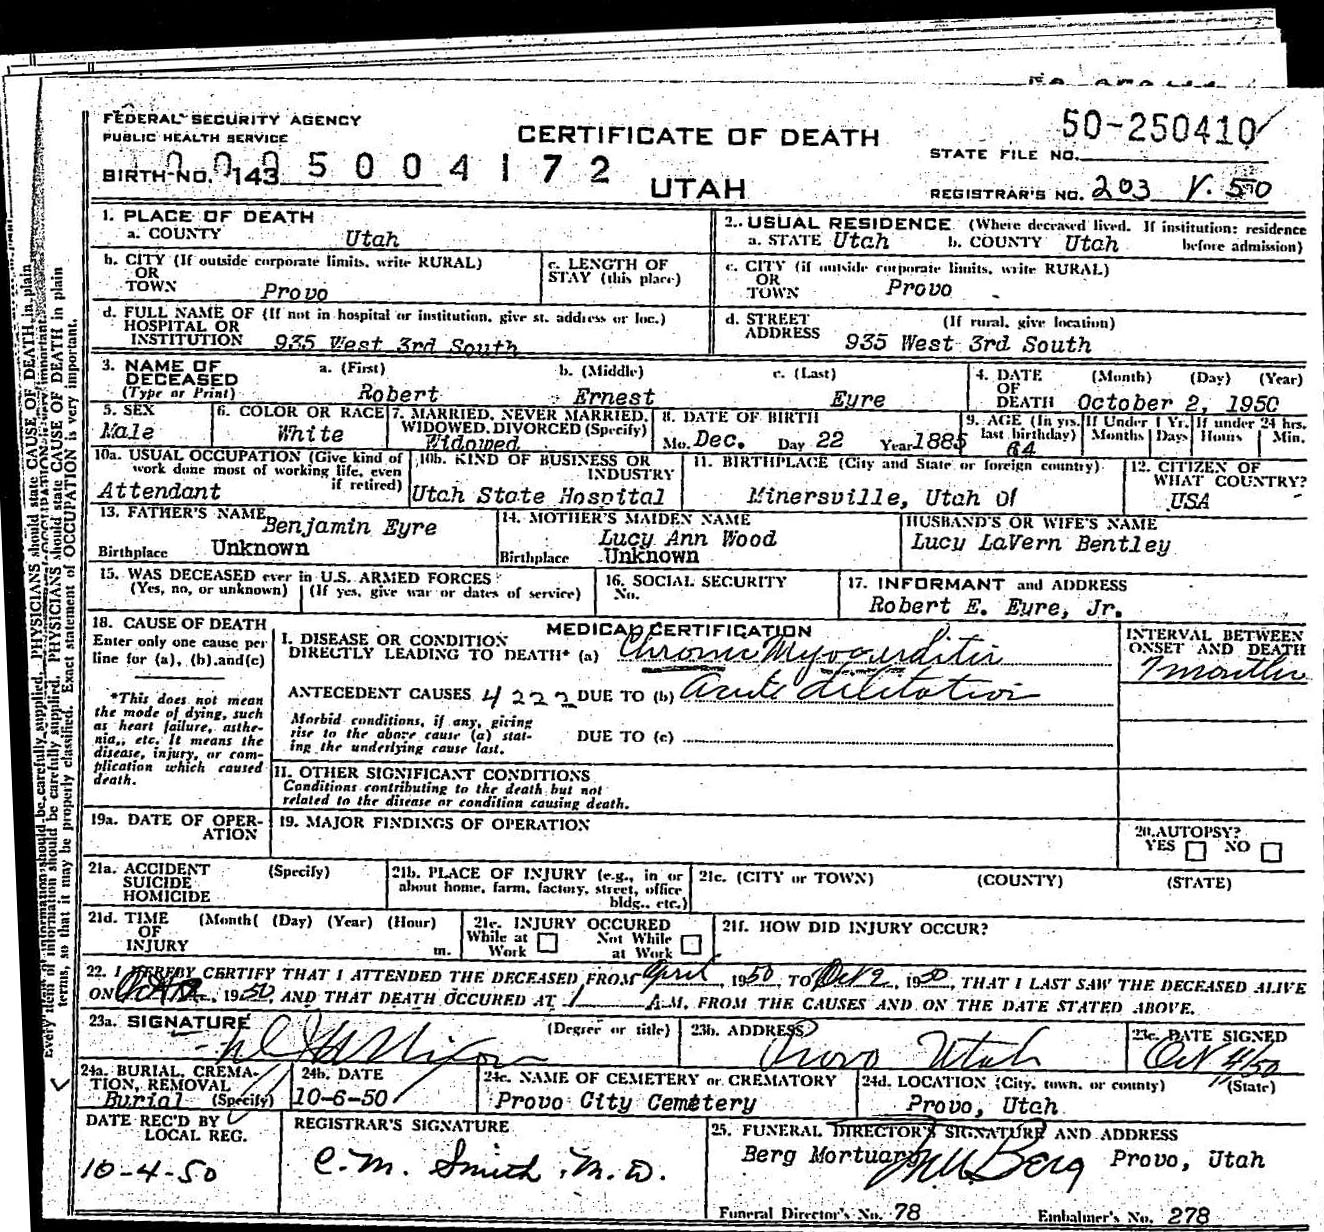 FEDERAL SECURITY AGENCY
PUBLIC HEALTH SERVICE
CERTIFICATE OF DEATH
50-250410
STATE FILE NO.
BIRTH NO. 143
5 0 0 4 1 7 2
UTAH
REGISTRAR'S NO. 203
1. PLACE OF DEATH
a. COUNTY Utah
b. CITY (If outside corporate limits, write RURAL)
OR
TOWN Provo
c. LENGTH OF
STAY (this place)
d. FULL NAME OF (If not in hospital or institution, give st. address or loc.)
HOSPITAL OR
INSTITUTION 935 West 3rd South
2. USUAL RESIDENCE (Where deceased lived. If institution: residence
a. STATE Utah b. COUNTY Utah before admission)
c. CITY (if outside corporate limits, write RURAL)
OR
TOWN Provo
d. STREET (If rural, give location)
ADDRESS 935 West 3rd South
3. NAME OF
DECEASED
(Type or Print)
a. (First) b. (Middle) c. (Last)
Robert Ernest Eyre
4. DATE (Month) (Day) (Year)
OF
DEATH October 2, 1950
5. SEX
Male
6. COLOR OR RACE
White
7. MARRIED, NEVER MARRIED,
WIDOWED, DIVORCED (Specify)
Widowed
8. DATE OF BIRTH
Mo. Dec. Day 22 Year 1885
9. AGE (In yrs. last birthday)
64
If Under 1 Yr.
Months Days
If under 24 hrs.
Hours Min.
10a. USUAL OCCUPATION (Give kind of
work done most of working life, even
if retired)
Attendant
10b. KIND OF BUSINESS OR
INDUSTRY
Utah State Hospital
11. BIRTHPLACE (City and State or foreign country)
Minersville, Utah Of
12. CITIZEN OF
WHAT COUNTRY?
USA
13. FATHER'S NAME
Benjamin Eyre
Birthplace Unknown
14. MOTHER'S MAIDEN NAME
Lucy Ann Wood
Birthplace Unknown
HUSBAND'S OR WIFE'S NAME
Lucy LaVern Bentley
15. WAS DECEASED ever in U.S. ARMED FORCES?
(Yes, no, or unknown) (If yes, give war or dates of service)
16. SOCIAL SECURITY
No.
17. INFORMANT and ADDRESS
Robert E. Eyre, Jr.
18. CAUSE OF DEATH
Enter only one cause per
line for (a), (b), and (c)
*This does not mean
the mode of dying, such
as heart failure, asthe-
nia, etc. It means the
disease, injury, or com-
plication which caused
death.
MEDICAL CERTIFICATION
I. DISEASE OR CONDITION
DIRECTLY LEADING TO DEATH* (a) Chronic Myocarditis
ANTECEDENT CAUSES 4222 DUE TO (b) acute dilitation
Morbid conditions, if any, giving
rise to the above cause (a) stat-
ing the underlying cause last.
DUE TO (c)
INTERVAL BETWEEN
ONSET AND DEATH
7 months
II. OTHER SIGNIFICANT CONDITIONS
Conditions contributing to the death but not
related to the disease or condition causing death.
19a. DATE OF OPER-
ATION
19. MAJOR FINDINGS OF OPERATION
20. AUTOPSY?
YES NO
21a. ACCIDENT (Specify)
SUICIDE
HOMICIDE
21b. PLACE OF INJURY (e.g., in or
about home, farm, factory, street, office
bldg., etc.)
21c. (CITY or TOWN) (COUNTY) (STATE)
21d. TIME (Month( (Day) (Year) (Hour)
OF
INJURY m.
21e. INJURY OCCURED
While at Work
Not While at Work
21f. HOW DID INJURY OCCUR?
22. I HEREBY CERTIFY THAT I ATTENDED THE DECEASED FROM April, 1950 TO Oct 2, 1950, THAT I LAST SAW THE DECEASED ALIVE
ON 1950, AND THAT DEATH OCCURED AT 1 A.M. FROM THE CAUSES AND ON THE DATE STATED ABOVE.
23a. SIGNATURE (Degree or title)
23b. ADDRESS
Provo Utah
23c. DATE SIGNED
Oct 4/50
24a. BURIAL, CREMA-
TION, REMOVAL
Burial (Specify)
24b. DATE
10-6-50
24c. NAME OF CEMETERY or CREMATORY
Provo City Cemetery
24d. LOCATION (City, town, or county) (State)
Provo, Utah
DATE REC'D BY
LOCAL REG.
10-4-50
REGISTRAR'S SIGNATURE
C. M. Smith M. D.
25. FUNERAL DIRECTOR'S SIGNATURE AND ADDRESS
Berg Mortuary Berg Provo, Utah
Funeral Director's No. 78
Embalmer's No. 278